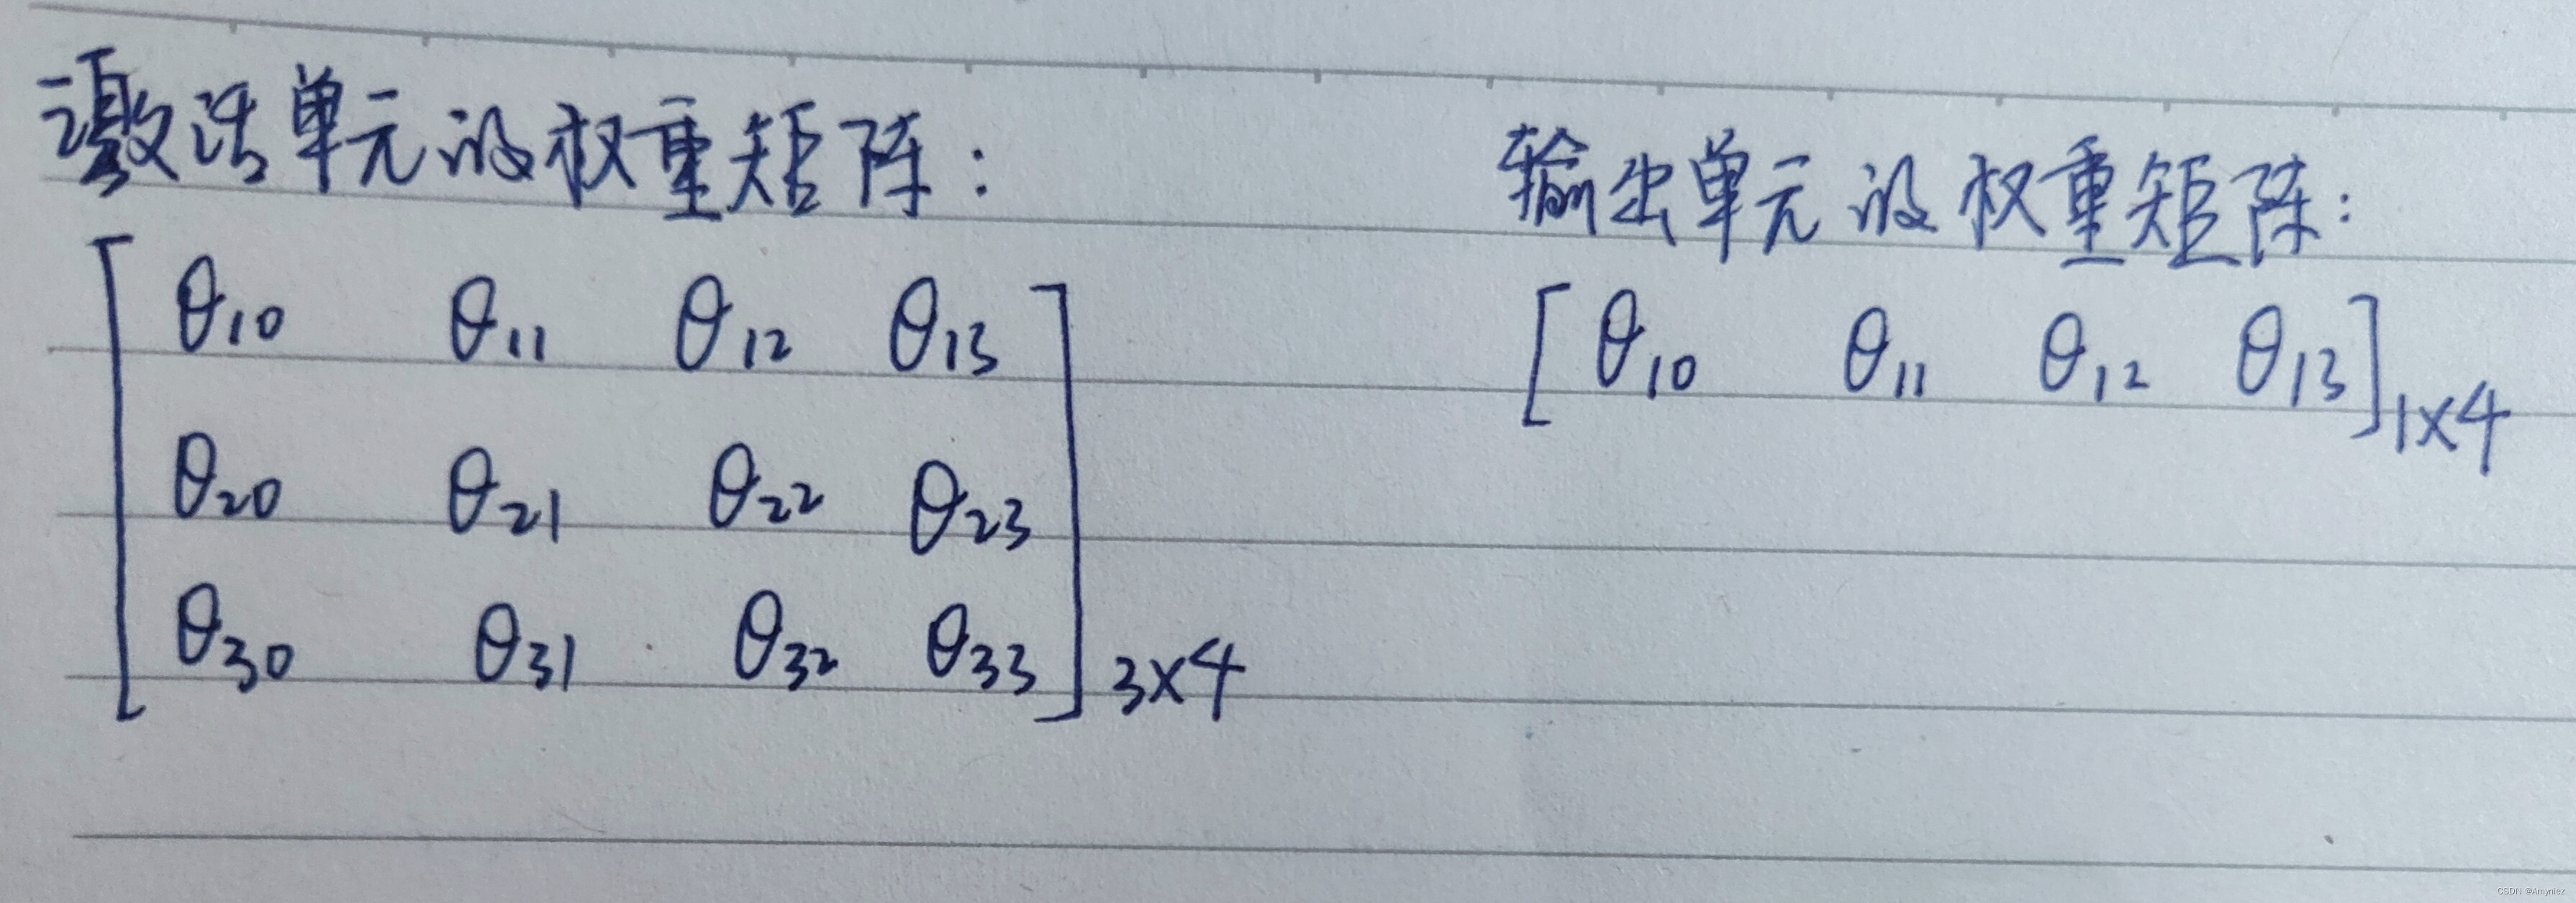 激活单元的权重矩阵：
θ10 θ11 θ12 θ13
θ20 θ21 θ22 θ23
θ30 θ31 θ32 θ33
3×4
输出单元的权重矩阵：
[θ10 θ11 θ12 θ13]1×4
CSDN @Amyniez